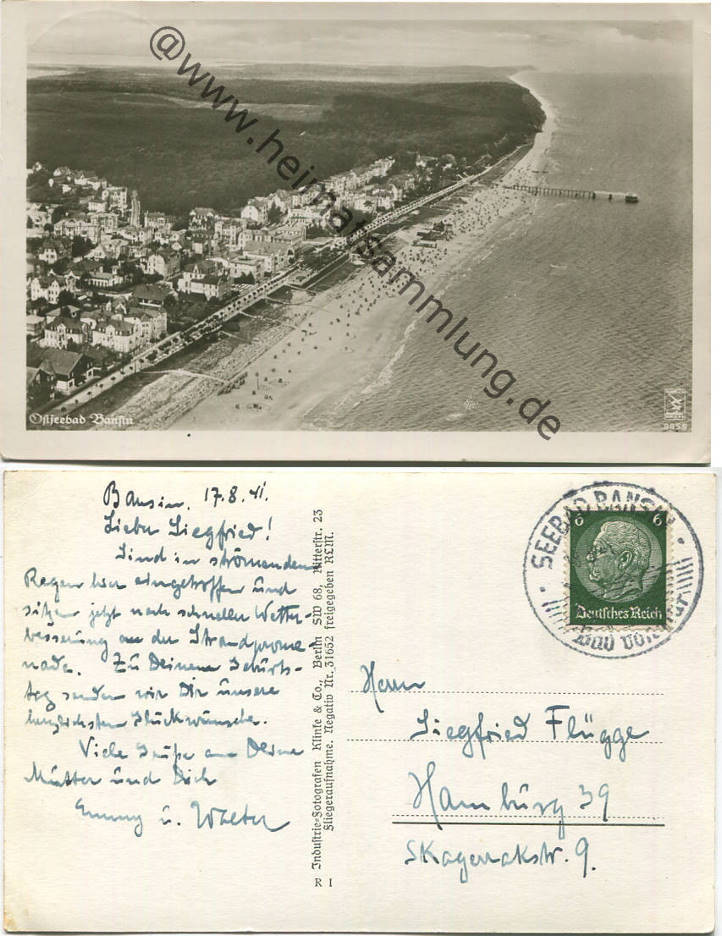 @www.heimatsammlung.de
Ostseebad Bansin
Bansin, 17.8.41.
Lieber Siegfried!
Sind in strömendem
Regen hier eingetroffen und
sitzen jetzt nach schneller Wetter-
besserung an der Strandprome-
nade. Zu Deinem Geburts-
tag senden wir Dir unsere
herzlichsten Glückwünsche.
Viele Grüße an Deine
Mutter und Dich
Emmy u. Walter
Industrie-Fotografen Klinke & Co., Berlin SW 68, Ritterstr. 23
Fliegeraufnahme. Negativ Nr. 31652 freigegeben RLM.
R I
SEEBAD BANSIN
6 6
Deutsches Reich
Herrn
Siegfried Flügge
Hamburg 39
Skagerrakstr. 9.